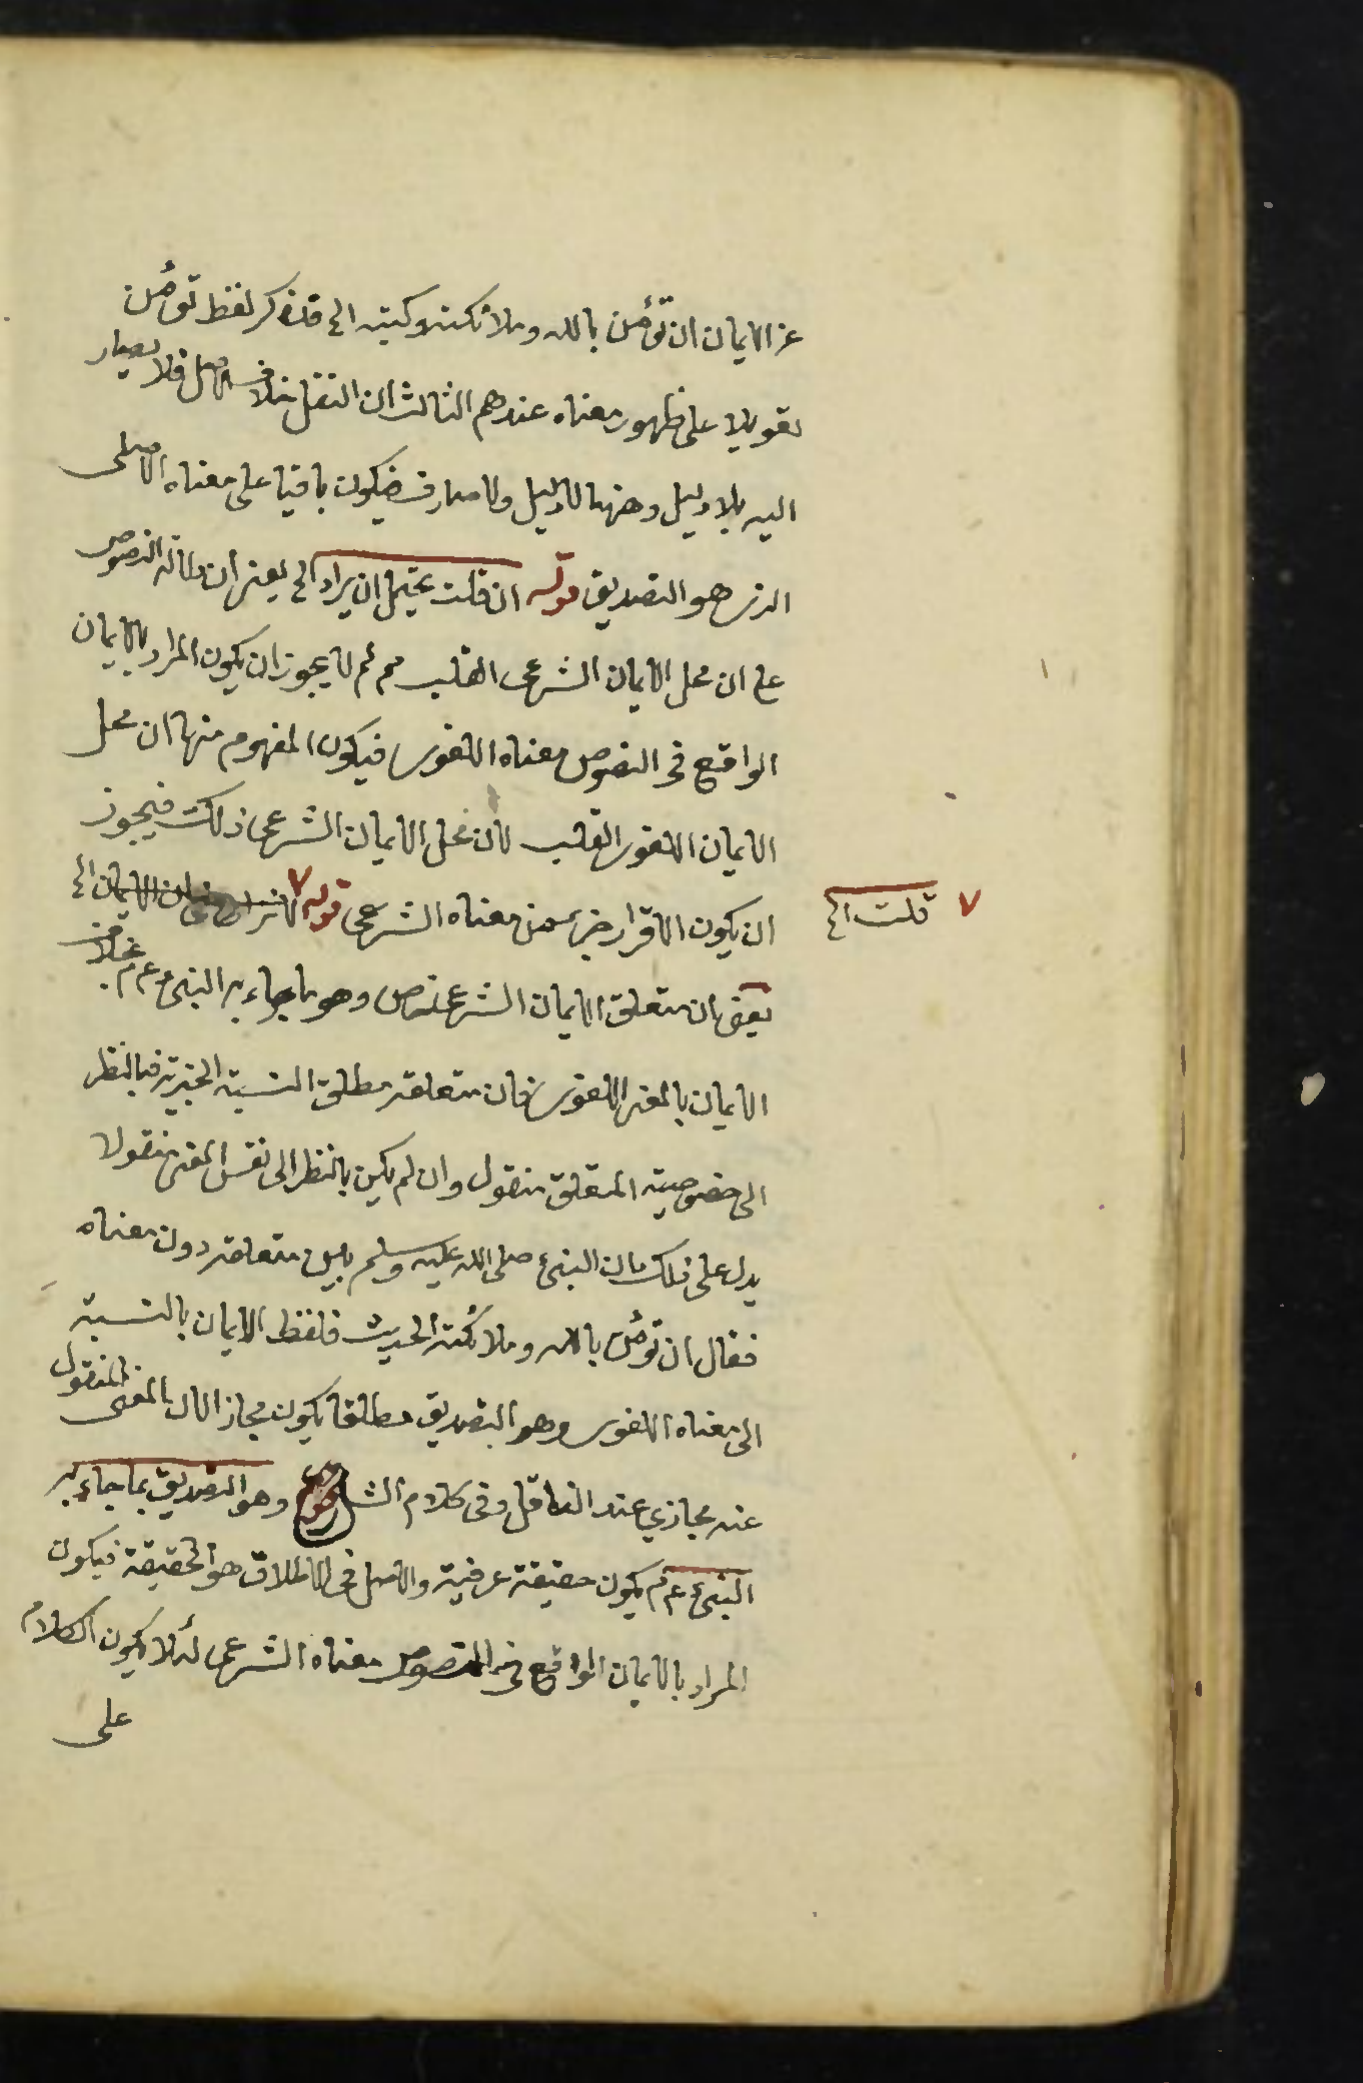 عن الايمان ان تؤمن بالله وملائكته وكتبه الخ قد ذكر لفظ تؤمن
تعويلا على ظهور معناه عندهم الثالث ان النقل خلاف الاصل فلا يصار
اليه بلا دليل وههنا لا دليل ولا صارف فيكون باقيا على معناه الاصلى
الذى هو التصديق قوله ان قلت يحتمل ان يراد الخ يعنى ان دلالة النصوص
على ان محل الايمان الشرعى القلب مم لم لا يجوز ان يكون المراد بالايمان
الواقع فى النصوص معناه اللغوى فيكون المفهوم منها ان محل
الايمان اللغوى القلب لا ان محل الايمان الشرعى ذلك فيجوز
ان يكون الاقرار جزء من معناه الشرعى قوله ٧
٧ قلت الخ
يعنى ان متعلق الايمان الشرعى خاص وهو ما جاء به النبى عم بخلاف
الايمان بالمعنى اللغوى فان متعلقه مطلق النسبة الخبرية فبالنظر
الى خصوصية المتعلق منقول وان لم يكن بالنظر الى نفس المعنى منقولا
يدل على ذلك ان النبى صلى الله عليه وسلم بين متعلقه دون معناه
فقال ان تؤمن بالله وملائكته الحديث فلفظ الايمان بالنسبة
الى معناه اللغوى وهو التصديق مطلقا يكون مجازا لان المعنى المنقول
عنه مجازى عند الناقل وفى كلام الشارع وهو التصديق بما جاء به
النبى عم يكون حقيقة عرفية والاصل فى الاطلاق هو الحقيقة فيكون
المراد بالايمان الواقع فى النصوص معناه الشرعى لئلا يكون الكلام
على